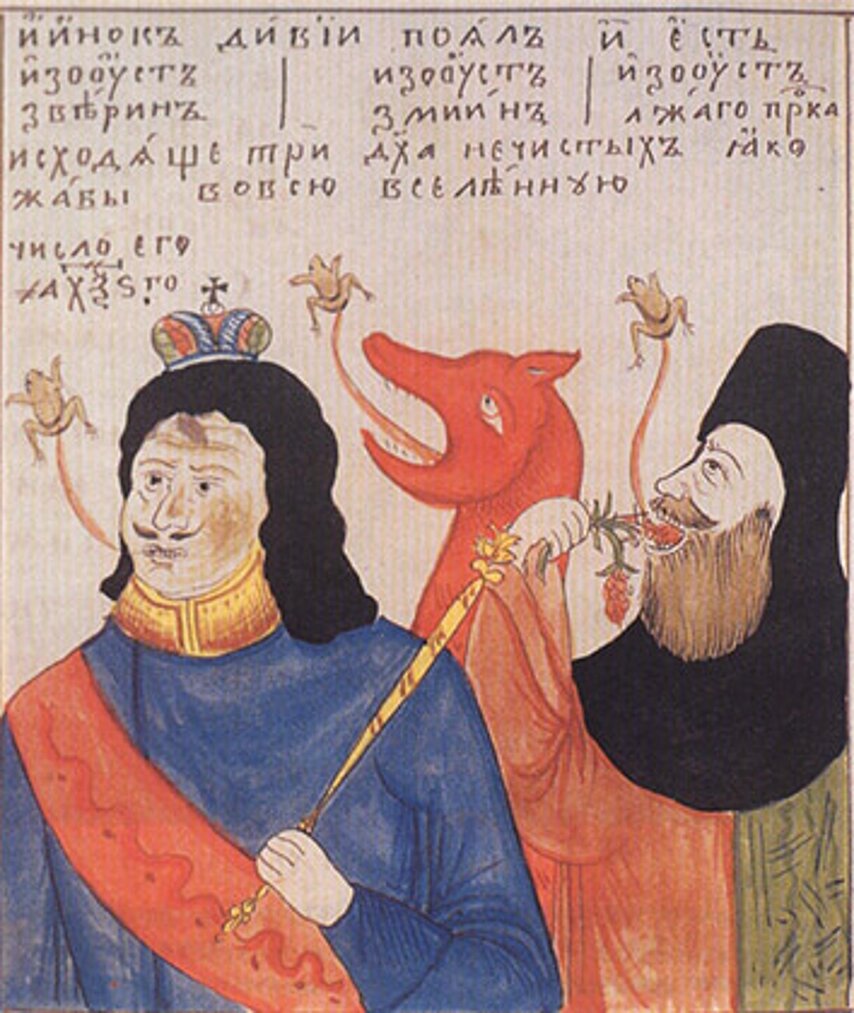 и҆и҆нокъ ди́вїи поѧ́лъ и҆ є҆сть
и҆зоо҆у́стъ | изоо҆у́стъ | и҆зооу́стъ
звѣ́ринъ | змїи́нъ | лжа́го прⷪ҇ка
исходѧ́ще трѝ дх҃а нечи́стыхъ ꙗ҆́ко
жа́бы вовсю̀ вселе́ннꙋю
число̀ его
҂ахѯѕ҃го